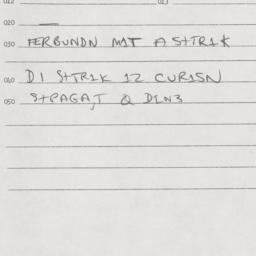 012 013
020
030 FERBUNDN MIT A SHTRIK
040 DI SHTRIK IZ CURISN
050 SHPAGAT Q DINZ